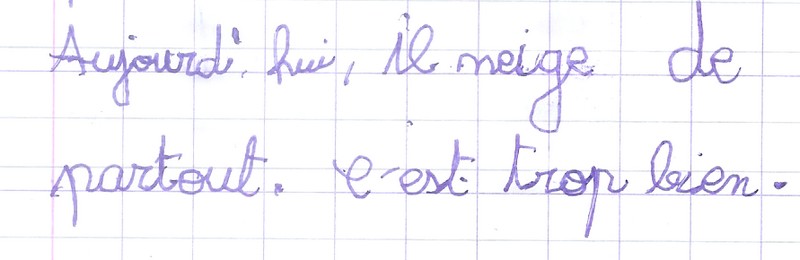 Aujourd'hui, il neige de
partout. c'est trop bien.